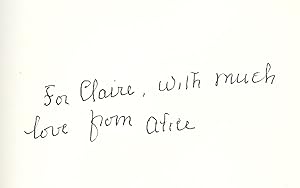 For Claire, with much
love from Alice